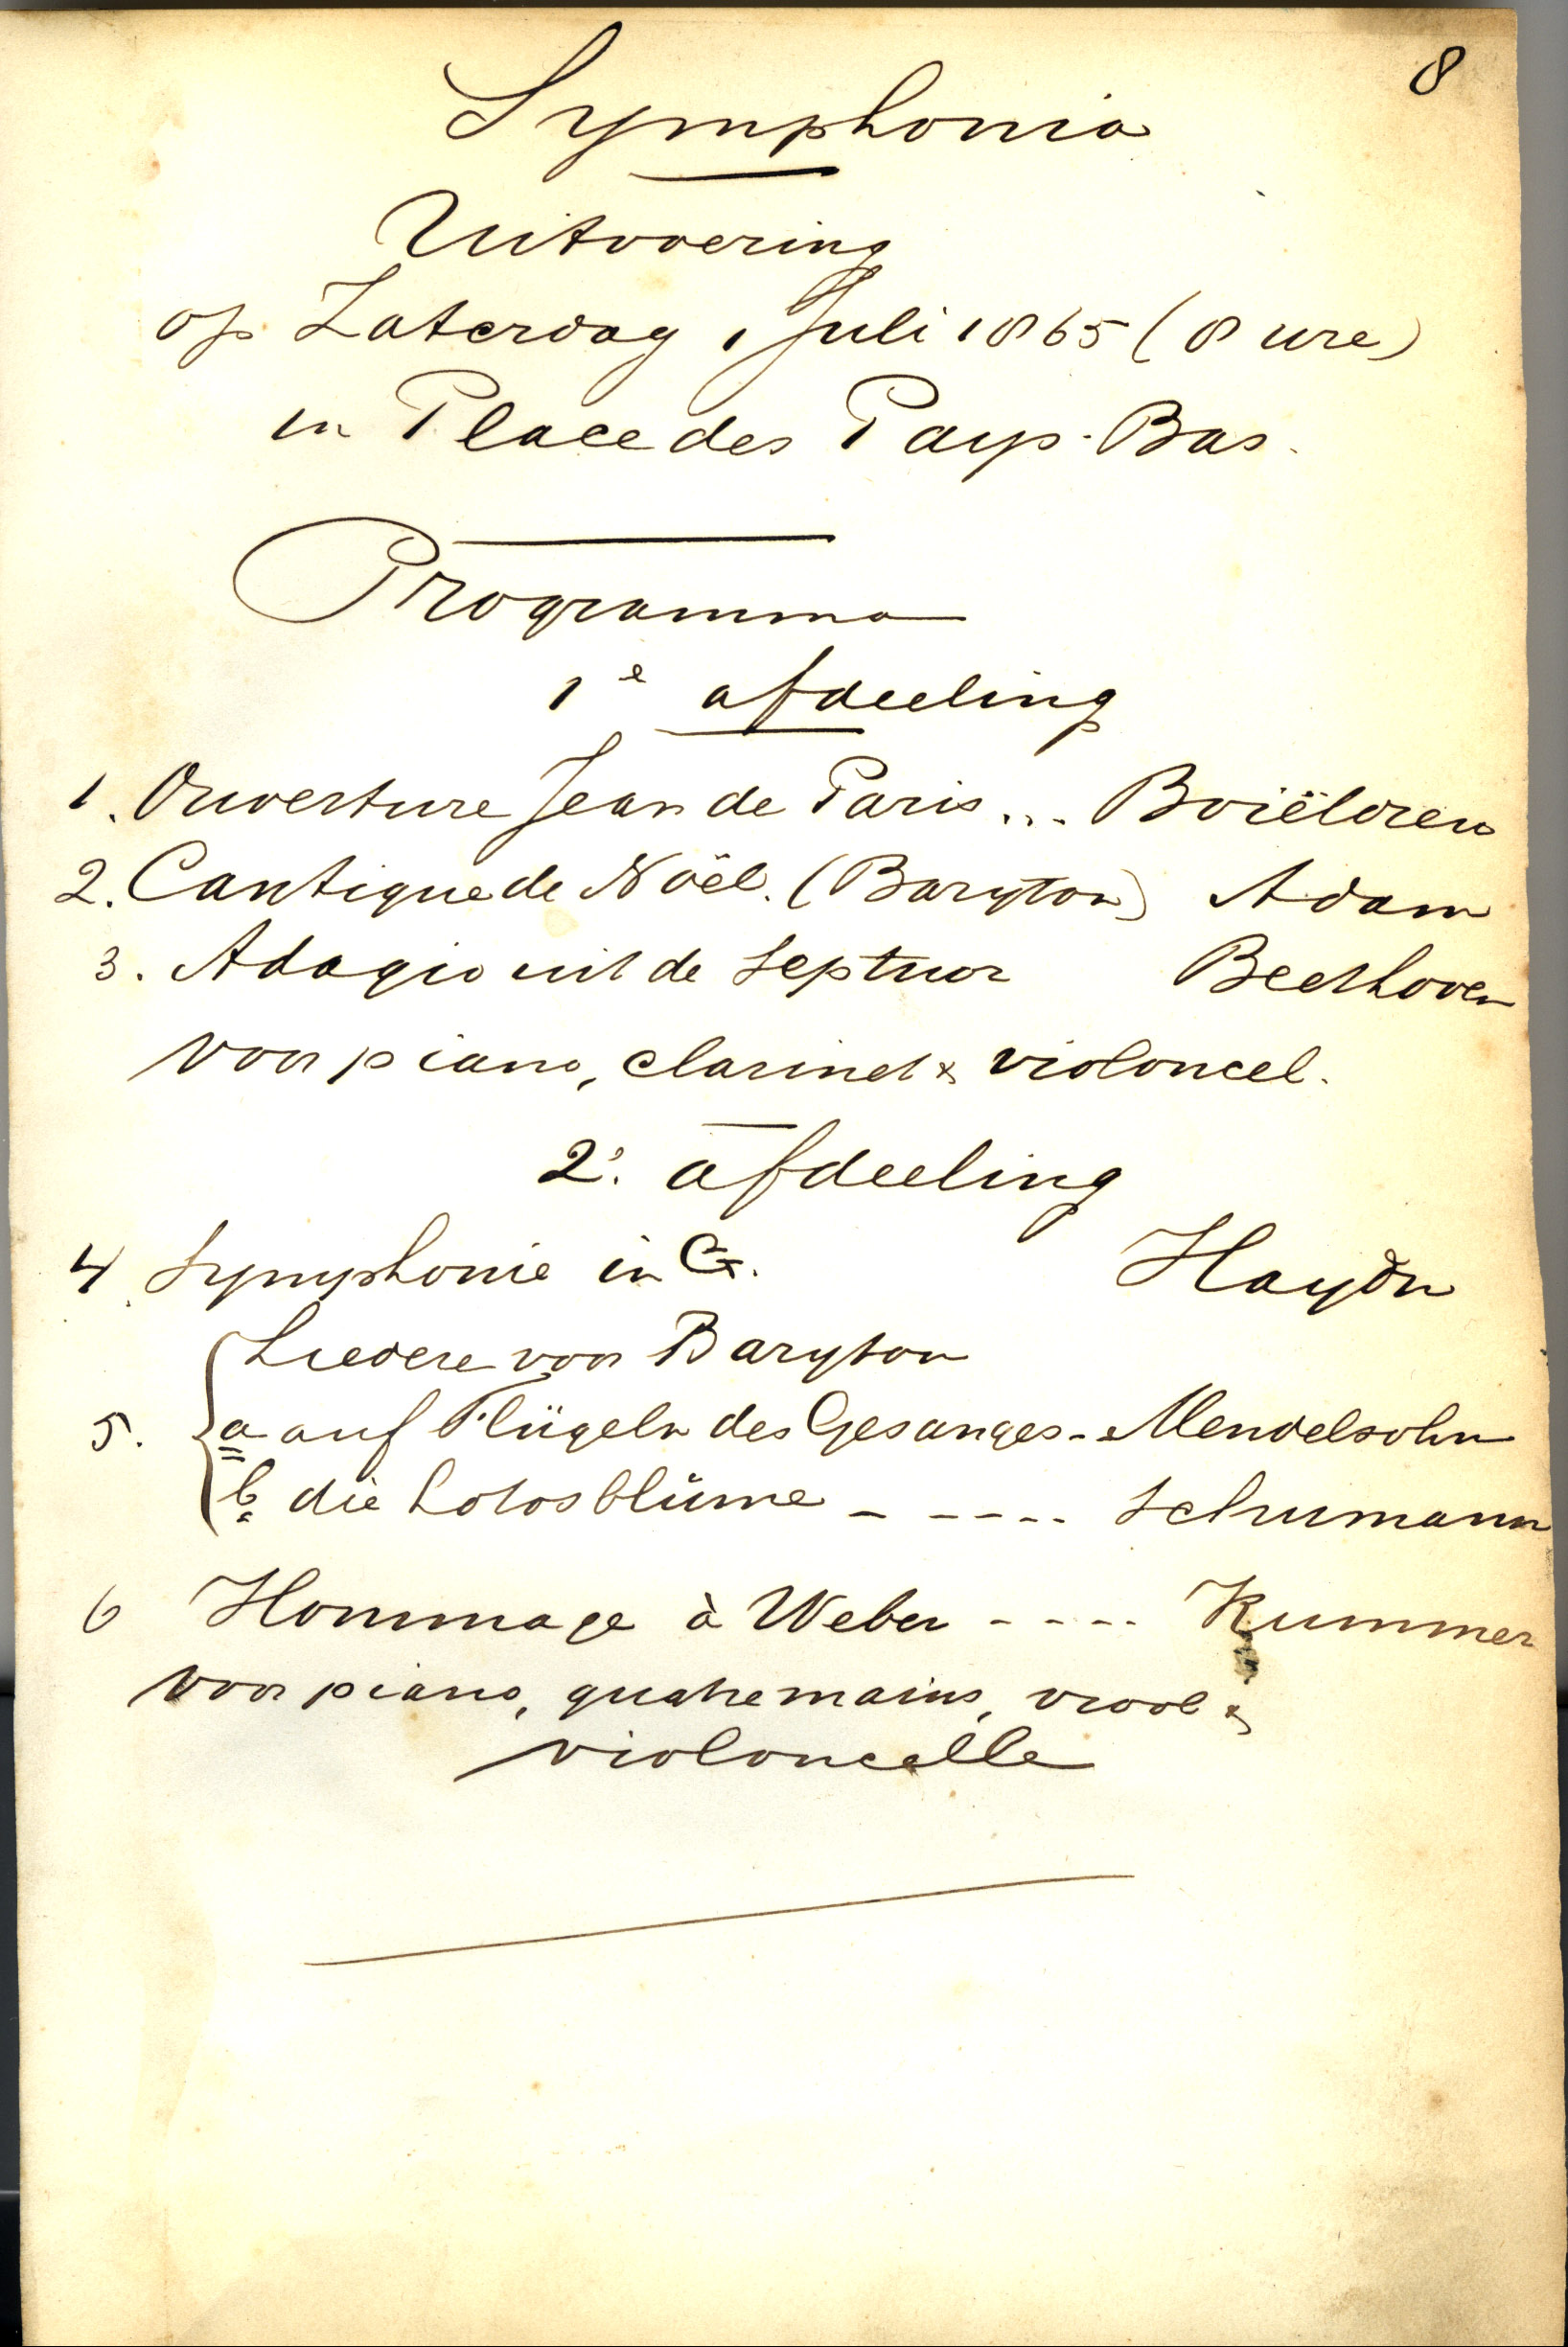 8
Symphonia
Uitvoering
op Zaterdag 1 Juli 1865 (8 ure)
in Place des Pays-Bas.
Programma
1e afdeeling
1. Ouverture Jean de Paris ... Boiëldieu
2. Cantique de Noël. (Baryton) Adam
3. Adagio uit de Septuor Beethoven
voor piano, clarinet & violoncel.
2e. afdeeling
4. Symphonie in G. Haydn
Liedere voor Baryton
5. a auf Flügeln des Gesanges -- Mendelsohn
b die Lotosblüme - ---- Schumann
6 Hommage à Weber ---- Kummer
voor piano, quatre mains, viool &
violoncelle